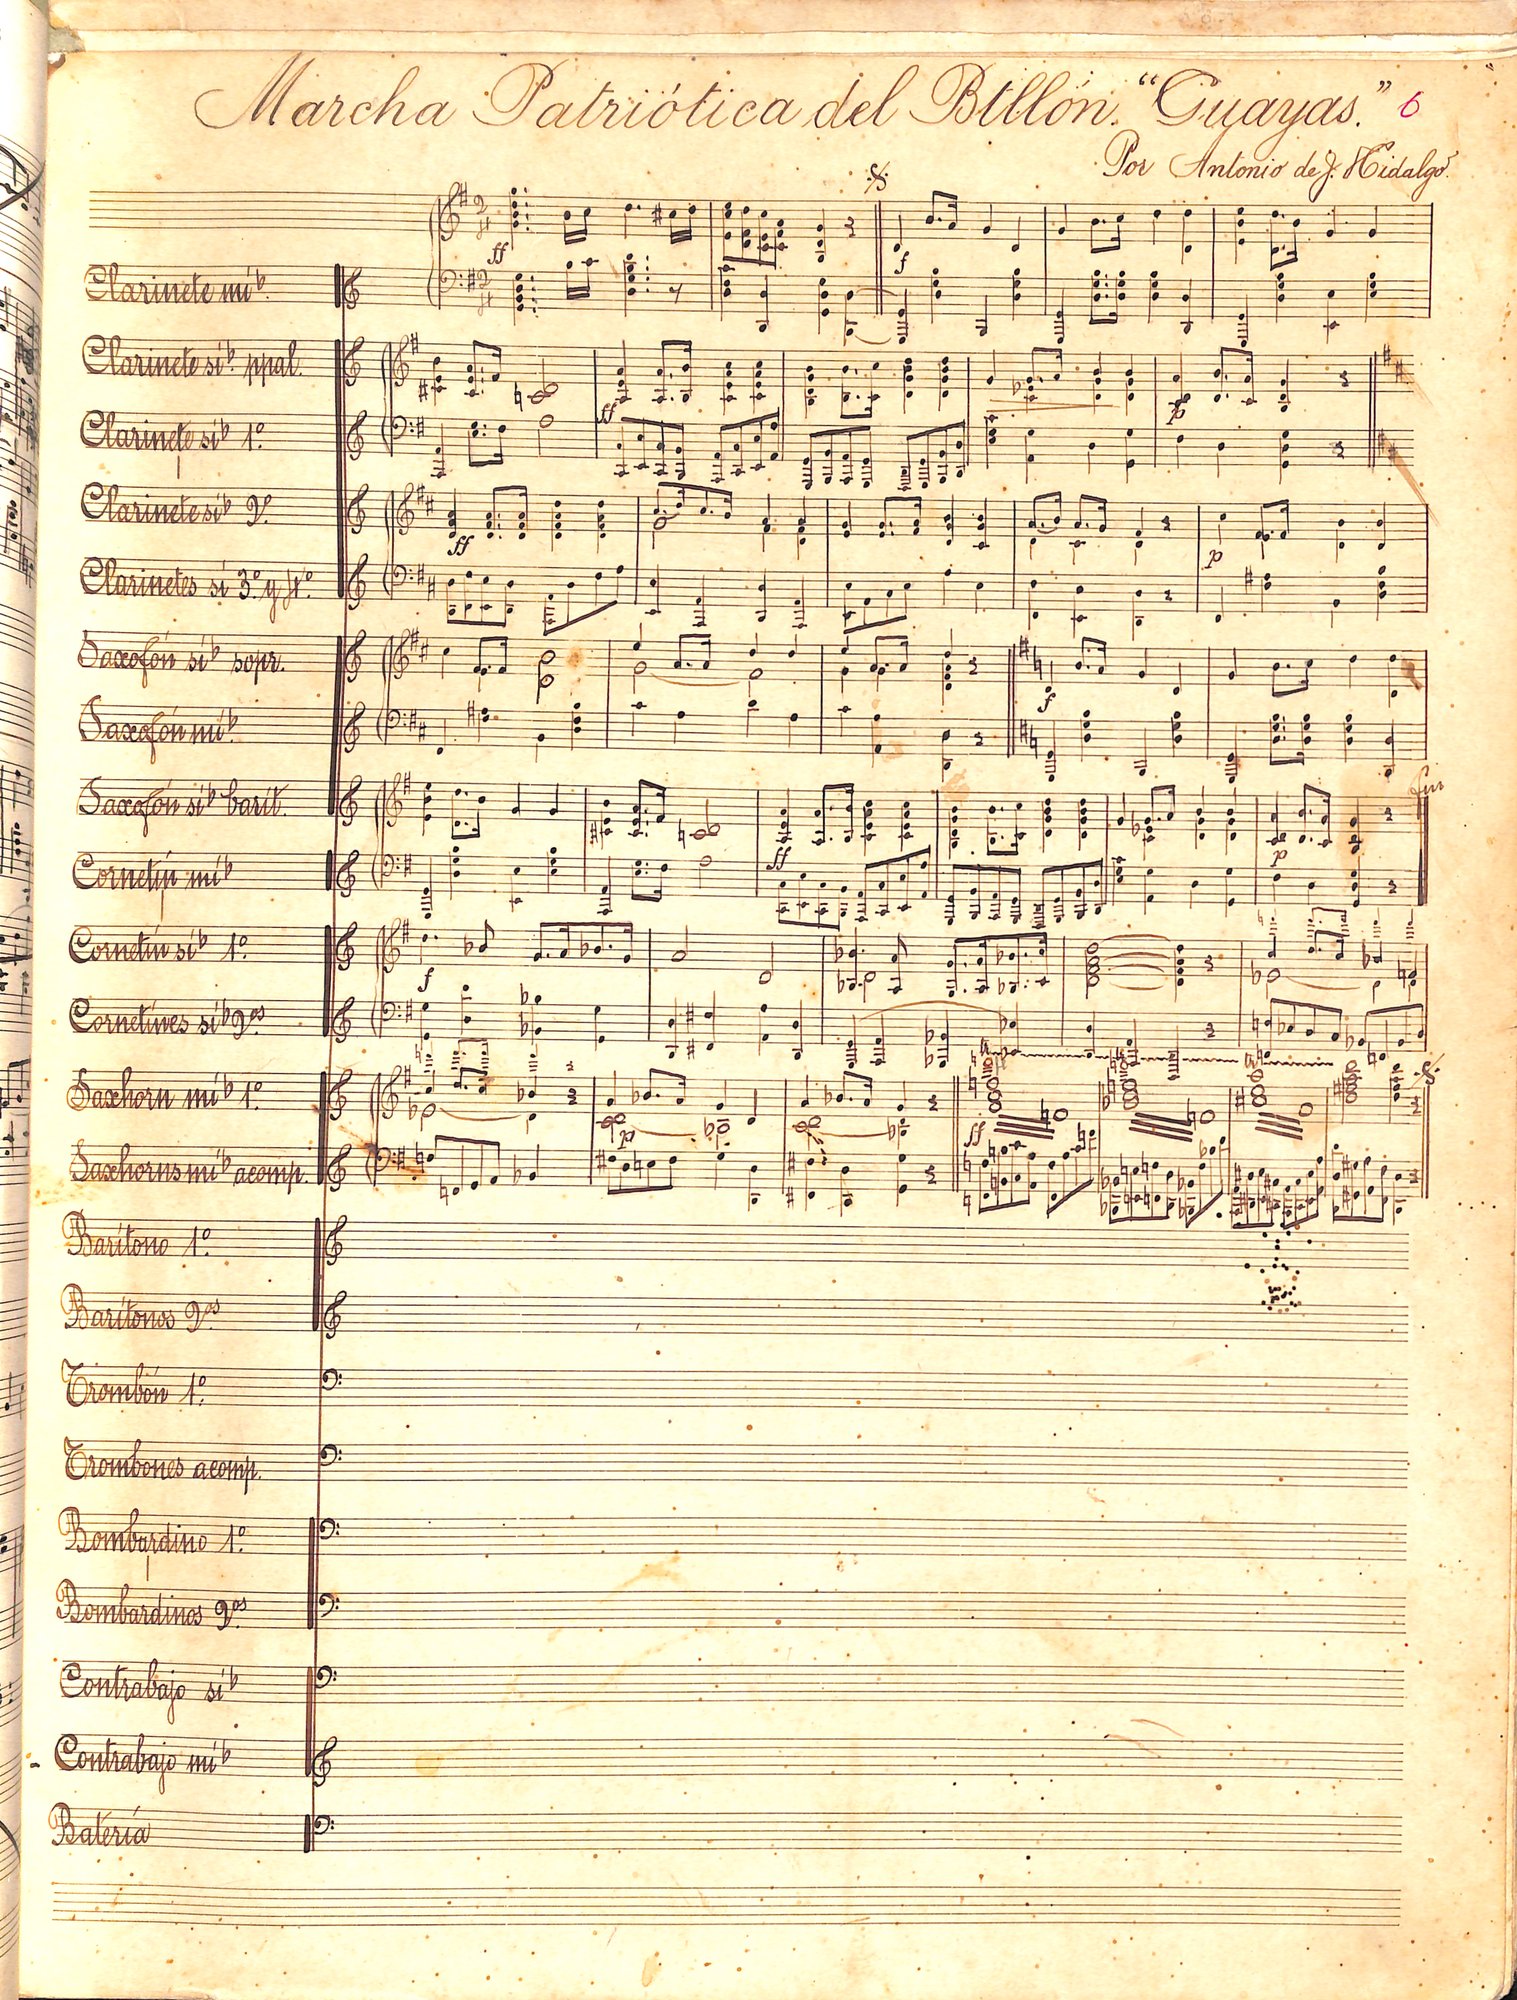 Marcha Patriótica del Btllón. "Guayas." 6
Por Antonio de J. Hidalgo.
ff
f
Clarinete mi♭.
Clarinete si♭. ppal.
ff
p
Clarinete si♭ 1º.
Clarinete si♭ 2º.
ff
p
Clarinetes si 3º. y 4º.
Saxofón si♭ sopr.
f
Saxofón mi♭.
fin
Saxofón si♭ barit.
ff
p
Cornetín mi♭
Cornetín si♭ 1º.
f
Cornetines si♭ 2os.
Saxhorn mi♭ 1º.
p
ff
Saxhorns mi♭ acomp.
Barítono 1º.
Barítonos 2os.
Trombón 1º.
Trombones acomp.
Bombardino 1º.
Bombardinos 2os.
Contrabajo si♭
Contrabajo mi♭
Batería